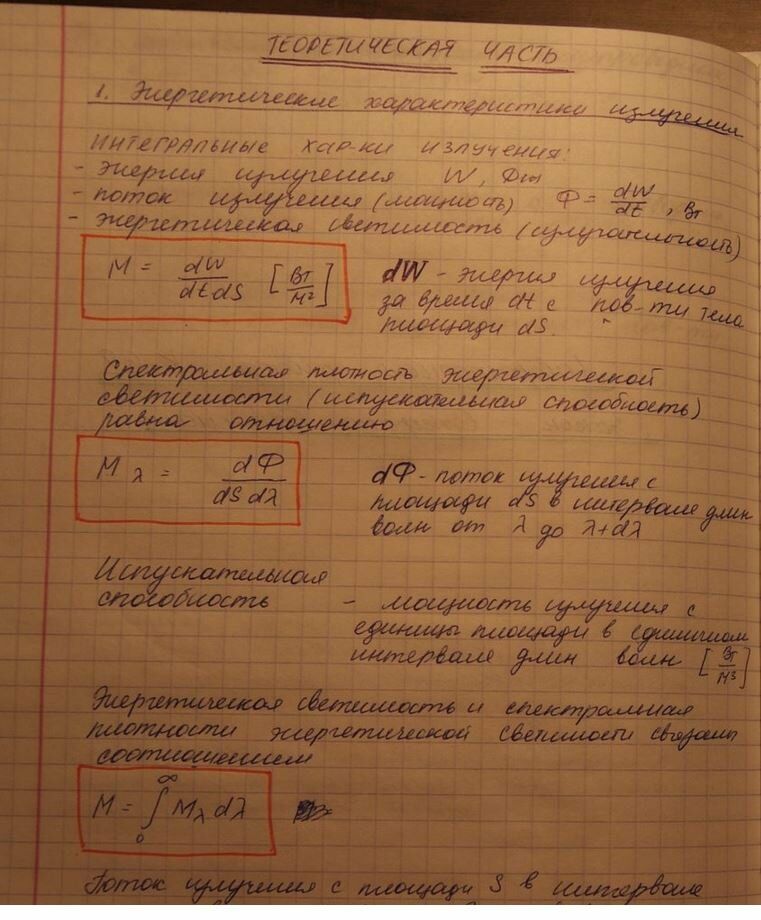 ТЕОРЕТИЧЕСКАЯ ЧАСТЬ
1. Энергетические характеристики излучения
ИНТЕГРАЛЬНЫЕ ХАР-КИ ИЗЛУЧЕНИЯ:
- энергия излучения W, Дж
- поток излучения (мощность) Ф = dW/dt, Вт
- энергетическая светимость (излучательность)
M = dW/dtdS [Вт/м²]
dW - энергия излучения
за время dt с пов-ти тела
площади dS.
Спектральная плотность энергетической
светимости (испускательная способность)
равна отношению
M λ = dФ/dS dλ
dФ - поток излучения с
площади dS в интервале длин
волн от λ до λ+dλ
Испускательная
способность - мощность излучения с
единицы площади в единичном
интервале длин волн [Вт/м³]
Энергетическая светимость и спектральная
плотности энергетической светимости связаны
соотношением
M = ∫₀^∞ Mλ dλ
Поток излучения с площади S в интервале